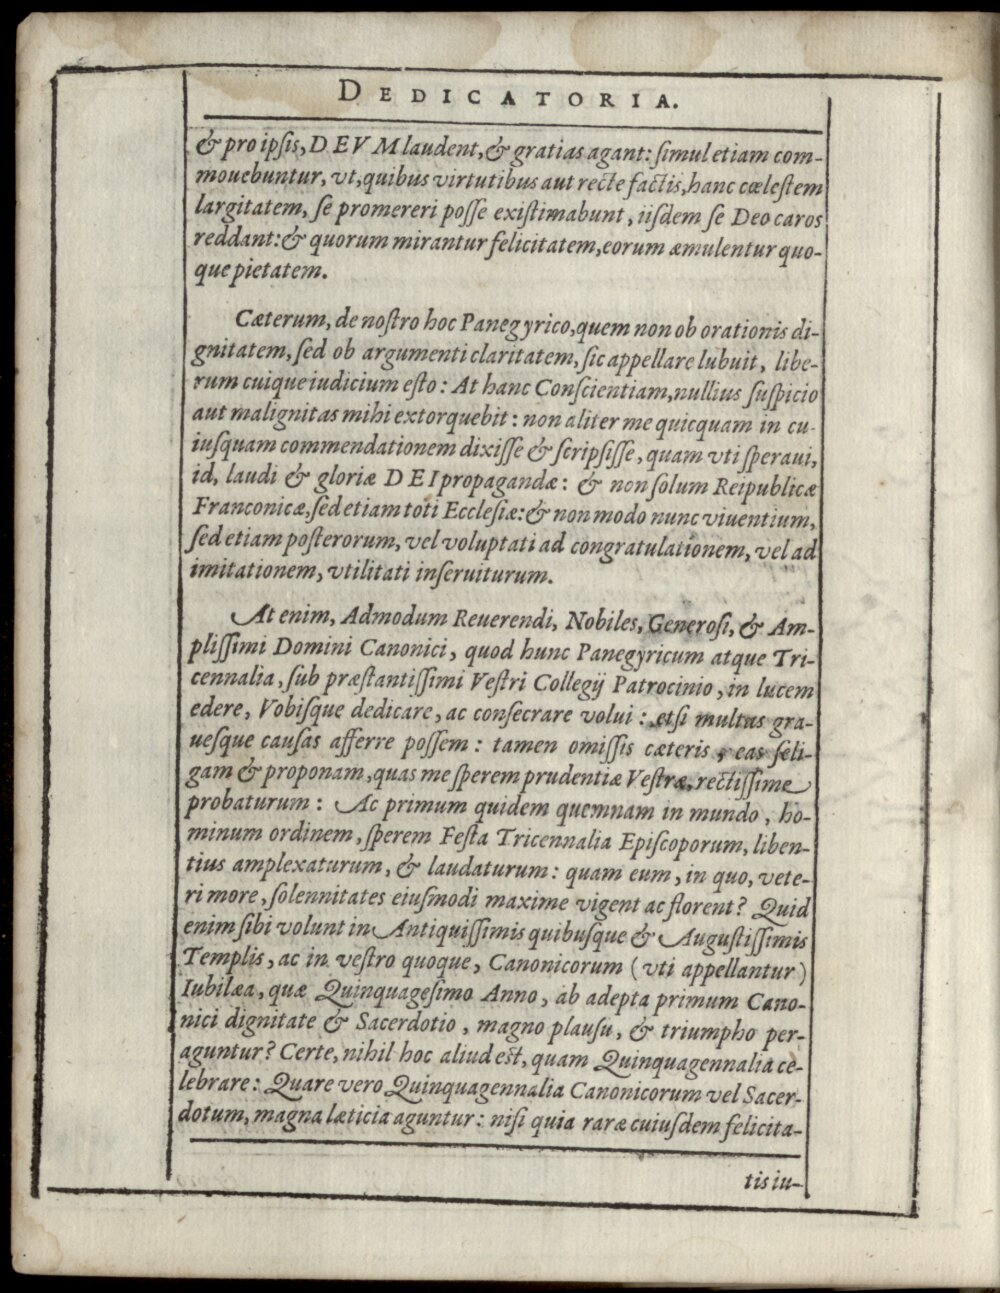 DEDICATORIA.
& pro ipſis, DEVM laudent, & gratias agant: ſimul etiam com-
mouebuntur, vt, quibus virtutibus aut recte factis, hanc cæleſtem
largitatem, ſe promereri poſſe exiſtimabunt, iiſdem ſe Deo caros
reddant: & quorum mirantur felicitatem, eorum æmulentur quo-
que pietatem.
Cæterum, de noſtro hoc Panegyrico, quem non ob orationis di-
gnitatem, ſed ob argumenti claritatem, ſic appellare lubuit, libe-
rum cuique iudicium eſto: At hanc Conſcientiam, nullius ſuſpicio
aut malignitas mihi extorquebit: non aliter me quicquam in cu-
iuſquam commendationem dixiſſe & ſcripſiſſe, quam vti ſperaui,
id, laudi & gloriæ DEI propagandæ: & non ſolum Reipublicæ
Franconicæ, ſed etiam toti Eccleſiæ: & non modo nunc viuentium,
ſed etiam poſterorum, vel voluptati ad congratulationem, vel ad
imitationem, vtilitati inſeruiturum.
At enim, Admodum Reuerendi, Nobiles, Generoſi, & Am-
pliſſimi Domini Canonici, quod hunc Panegyricum atque Tri-
cennalia, ſub præſtantiſſimi Veſtri Collegij Patrocinio, in lucem
edere, Vobiſque dedicare, ac conſecrare volui: etſi multas gra-
ueſque cauſas afferre poſſem: tamen omiſſis cæteris, eas ſeli-
gam & proponam, quas me ſperem prudentiæ Veſtræ, rectiſſime
probaturum: Ac primum quidem quemnam in mundo, ho-
minum ordinem, ſperem Feſta Tricennalia Epiſcoporum, liben-
tius amplexaturum, & laudaturum: quam eum, in quo, vete-
ri more, ſolennitates eiuſmodi maxime vigent ac florent? Quid
enim ſibi volunt in Antiquiſſimis quibuſque & Auguſtiſſimis
Templis, ac in veſtro quoque, Canonicorum (vti appellantur)
Iubilæa, quæ Quinquageſimo Anno, ab adepta primum Cano-
nici dignitate & Sacerdotio, magno plauſu, & triumpho per-
aguntur? Certe, nihil hoc aliud eſt, quam Quinquagennalia ce-
lebrare: Quare vero Quinquagennalia Canonicorum vel Sacer-
dotum, magna læticia aguntur: niſi quia raræ cuiuſdem felicita-
tis iu-